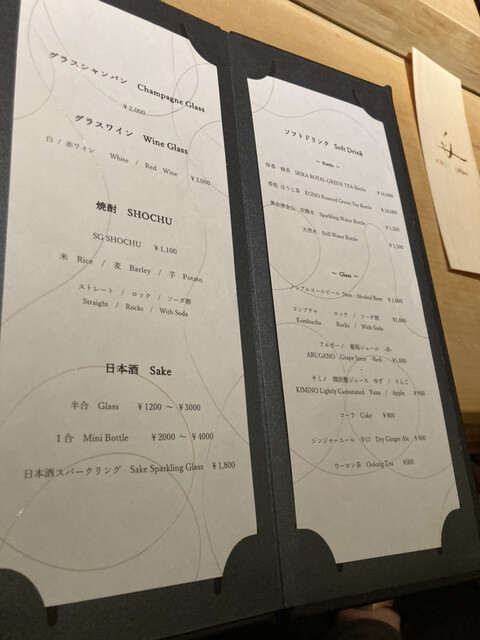 グラスシャンパン Champagne Glass
¥2,000
グラスワイン Wine Glass
白 / 赤ワイン White / Red Wine ¥2,000
焼酎 SHOCHU
SG SHOCHU ¥1,100
米 Rice / 麦 Barley / 芋 Potato
ストレート / ロック / ソーダ割
Straight / Rocks / With Soda
日本酒 Sake
半合 Glass ¥1200 ~ ¥3000
1合 Mini Bottle ¥2000 ~ ¥4000
日本酒スパークリング Sake Sparkling Glass ¥1,800
ソフトドリンク Soft Drink
~ Bottle ~
緑茶 IRIKA ROYAL GREEN TEA Bottle ¥10,000
ほうじ茶 KOHO Roasted Green Tea Bottle ¥10,000
炭酸水 Sparkling Water Bottle ¥1,200
天然水 Still Water Bottle ¥1,100
~ Glass ~
ノンアルコールビール Non - Alcohol Beer ¥1,000
コンブチャ ロック / ソーダ割 ¥1,000
Kombucha Rocks / With Soda
アルガーノ 葡萄ジュース -赤-
ARUGANO Grape Juice -Red- ¥1,000
キミノ 微炭酸ジュース ゆず / りんご
KIMINO Lightly Carbonated Yuzu / Apple ¥900
コーラ Coke ¥800
ジンジャーエール 辛口 Dry Ginger Ale ¥800
ウーロン茶 Oolong Tea ¥500